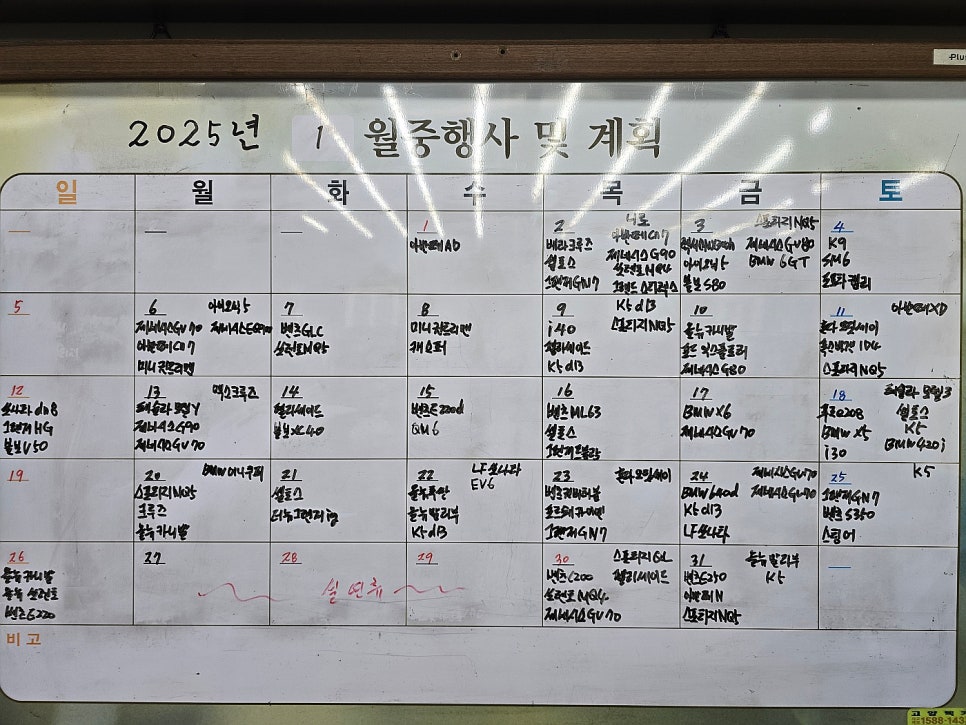 2025년 1 월중행사 및 계획
일 월 화 수 목 금 토
1
아반떼AD
2
니로
아반떼CN7
베라크루즈
제네시스G90
셀토스
쏘렌토MQ4
그랜저GN7
3
스포티지NQ5
제네시스GV80
아이오닉5
BMW 6GT
볼보S80
4
K9
SM6
토요타캠리
5
6
아이오닉5
제네시스GV70
아반떼CN7
미니컨트리맨
7
벤츠GLC
8
미니컨트리맨
9
K5 dl3
i40
스포티지NQ5
팰리세이드
K5 dl3
10
올뉴카니발
포드 익스플로러
제네시스G80
11
아반떼XD
혼다오딧세이
폭스바겐 ID4
스포티지NQ5
12
쏘나타 dn8
그랜저HG
볼보V50
13
멕스크루즈
테슬라 모델Y
제네시스G90
제네시스GV70
14
팰리세이드
볼보XC40
15
벤츠E220d
QM6
16
벤츠ML63
셀토스
17
BMW X6
제네시스GV70
18
테슬라 모델3
푸조208
셀토스
BMW X5
K5
i30
BMW420i
19
20
BMW미니쿠퍼
스포티지NQ5
크루즈
올뉴카니발
21
셀토스
더뉴그랜저ig
22
LF쏘나타
EV6
올뉴투싼
올뉴말리부
K5 dl3
23
혼다오딧세이
포르쉐카이엔
그랜저GN7
24
제네시스GV70
BMW640d
제네시스GV70
K5 dl3
LF쏘나타
25
K5
그랜저GN7
벤츠S350
스팅어
26
올뉴카니발
올뉴쏘렌토
벤츠E220
27
28
29
설 연휴
30
스포티지QL
벤츠C200
팰리세이드
쏘렌토MQ4
제네시스GV70
31
올뉴말리부
벤츠E250
K5
아반떼N
스포티지NQ5
비고